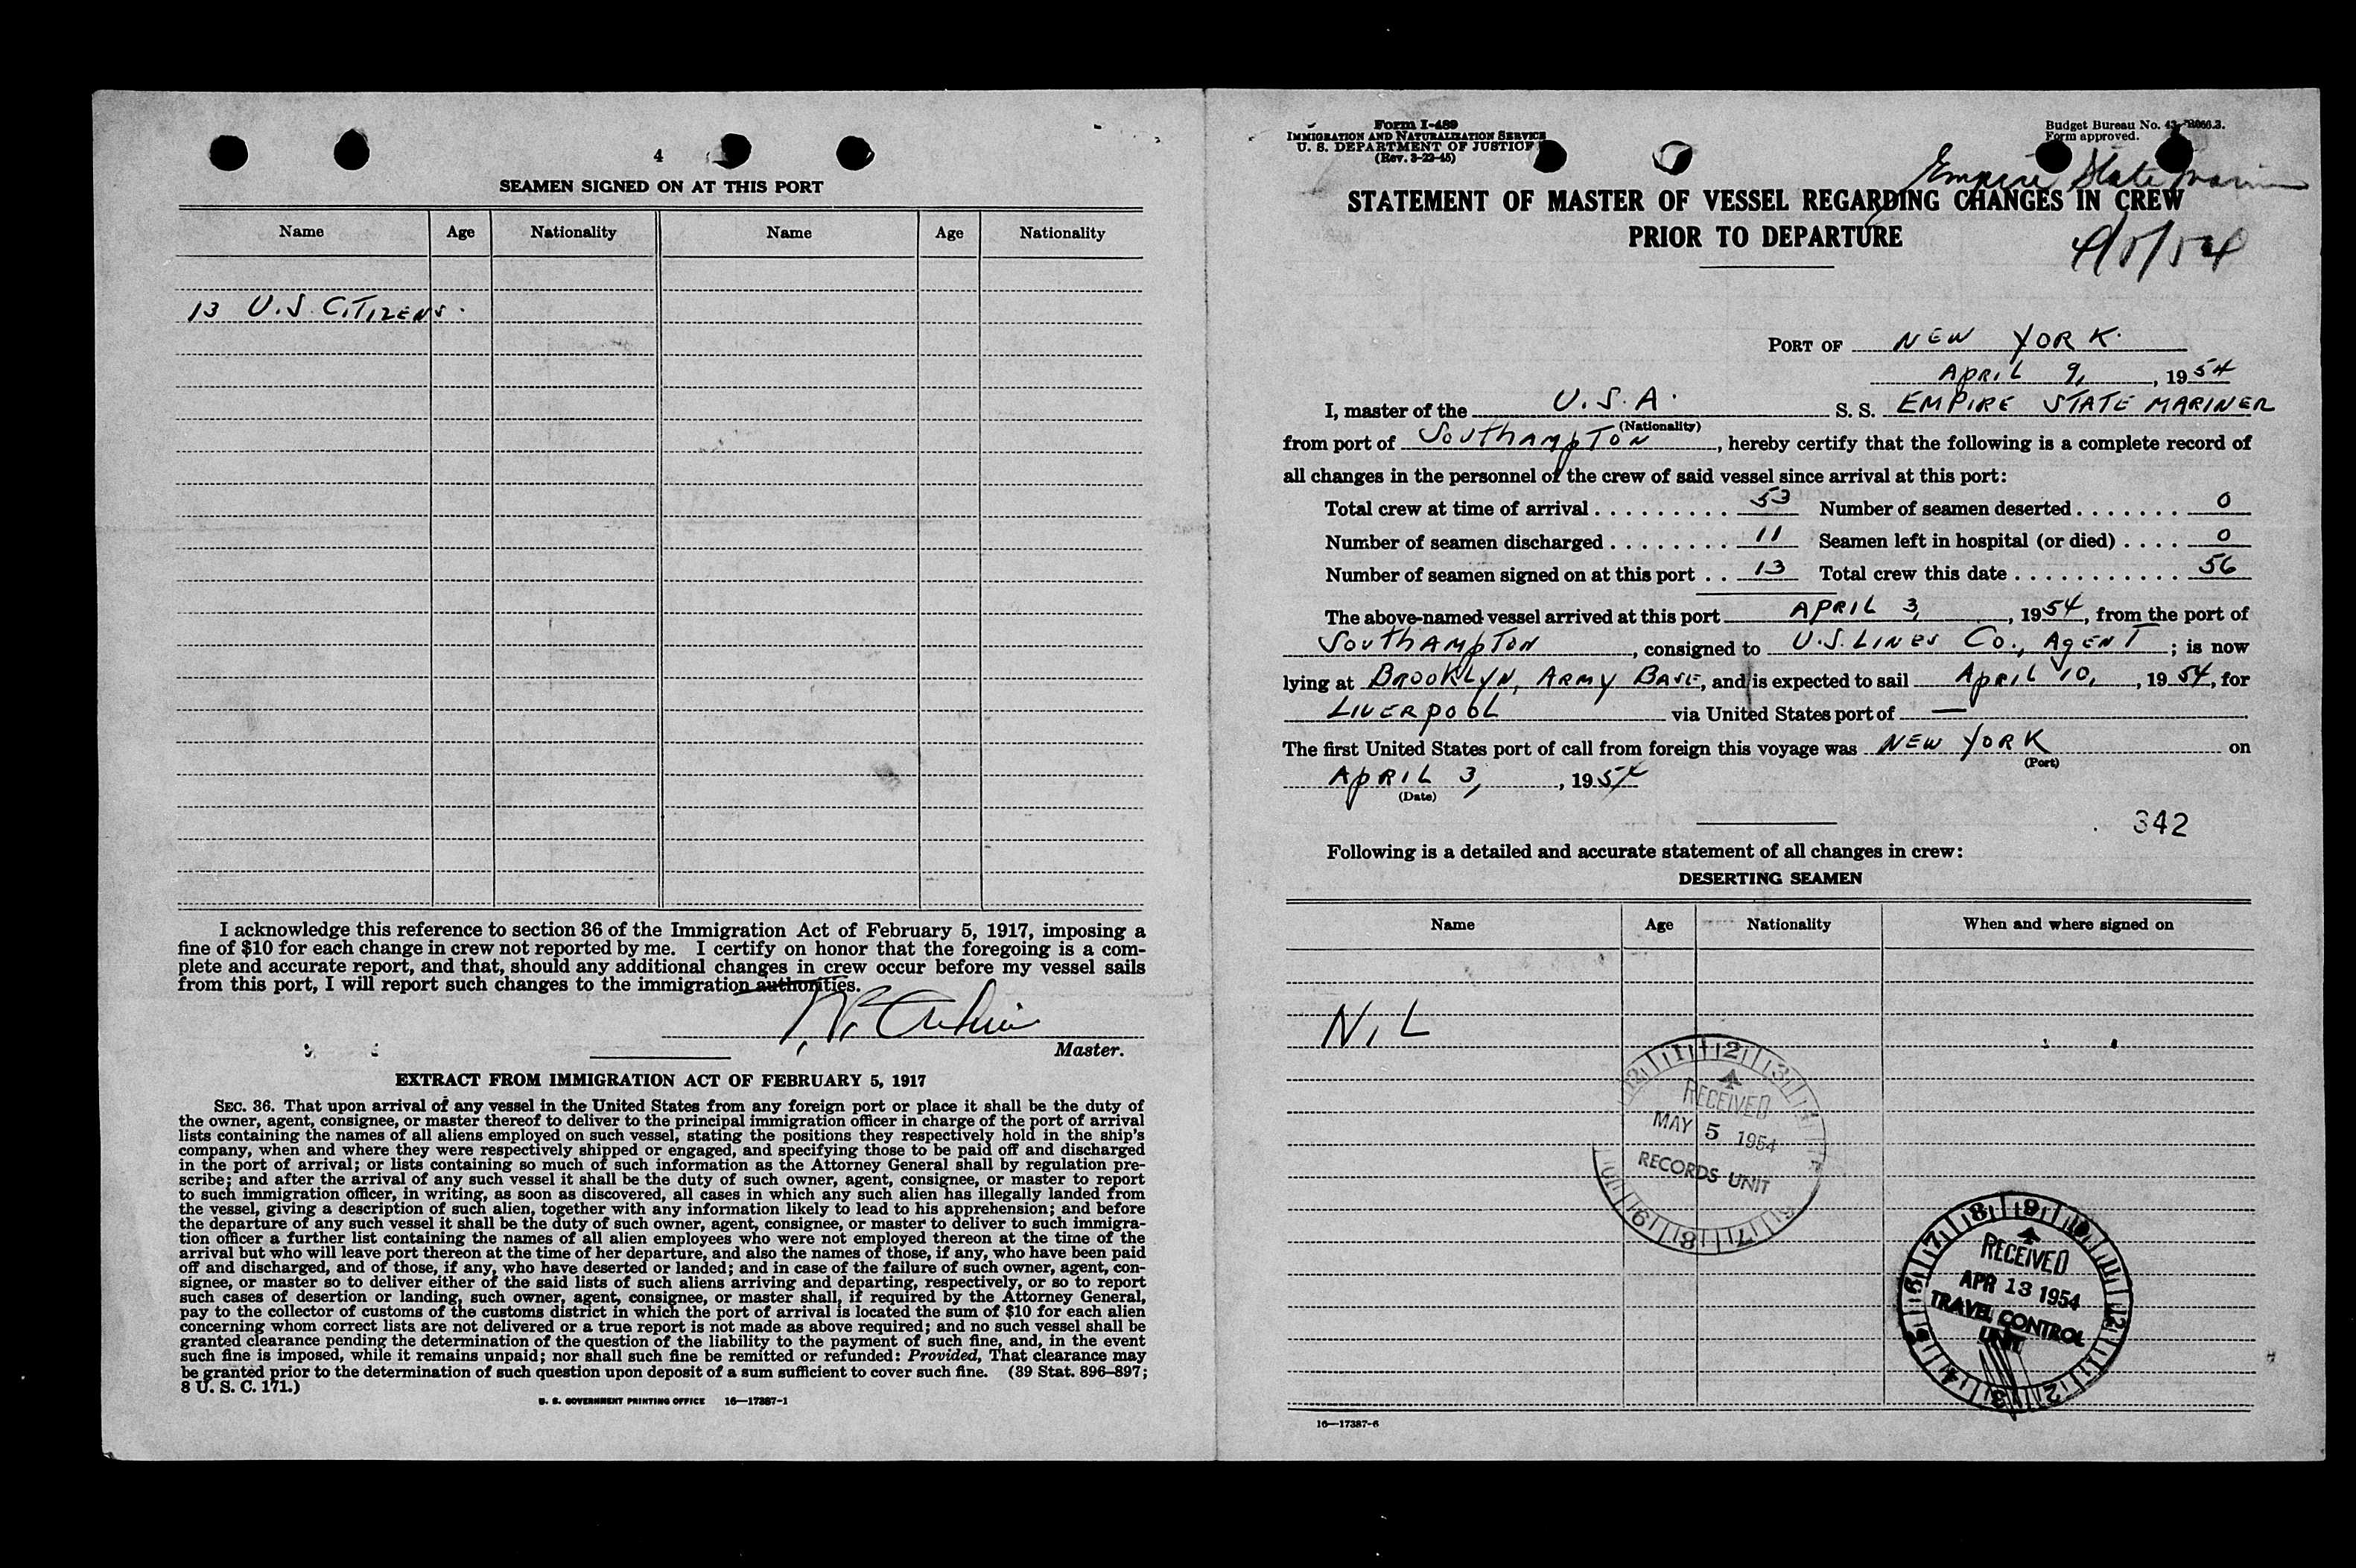 4
SEAMEN SIGNED ON AT THIS PORT
Name Age Nationality Name Age Nationality
13 U.S. CITIZENS.
I acknowledge this reference to section 36 of the Immigration Act of February 5, 1917, imposing a
fine of $10 for each change in crew not reported by me. I certify on honor that the foregoing is a com-
plete and accurate report, and that, should any additional changes in crew occur before my vessel sails
from this port, I will report such changes to the immigration authorities.
Master.
EXTRACT FROM IMMIGRATION ACT OF FEBRUARY 5, 1917
SEC. 36. That upon arrival of any vessel in the United States from any foreign port or place it shall be the duty of
the owner, agent, consignee, or master thereof to deliver to the principal immigration officer in charge of the port of arrival
lists containing the names of all aliens employed on such vessel, stating the positions they respectively hold in the ship's
company, when and where they were respectively shipped or engaged, and specifying those to be paid off and discharged
in the port of arrival; or lists containing so much of such information as the Attorney General shall by regulation pre-
scribe; and after the arrival of any such vessel it shall be the duty of such owner, agent, consignee, or master to report
to such immigration officer, in writing, as soon as discovered, all cases in which any such alien has illegally landed from
the vessel, giving a description of such alien, together with any information likely to lead to his apprehension; and before
the departure of any such vessel it shall be the duty of such owner, agent, consignee, or master to deliver to such immigra-
tion officer a further list containing the names of all alien employees who were not employed thereon at the time of the
arrival but who will leave port thereon at the time of her departure, and also the names of those, if any, who have been paid
off and discharged, and of those, if any, who have deserted or landed; and in case of the failure of such owner, agent, con-
signee, or master so to deliver either of the said lists of such aliens arriving and departing, respectively, or so to report
such cases of desertion or landing, such owner, agent, consignee, or master shall, if required by the Attorney General,
pay to the collector of customs of the customs district in which the port of arrival is located the sum of $10 for each alien
concerning whom correct lists are not delivered or a true report is not made as above required; and no such vessel shall be
granted clearance pending the determination of the question of the liability to the payment of such fine, and, in the event
such fine is imposed, while it remains unpaid; nor shall such fine be remitted or refunded: Provided, That clearance may
be granted prior to the determination of such question upon deposit of a sum sufficient to cover such fine. (39 Stat. 896–897;
8 U. S. C. 171.)
U. S. GOVERNMENT PRINTING OFFICE 16—17387-1
Form I-489
IMMIGRATION AND NATURALIZATION SERVICE
U. S. DEPARTMENT OF JUSTICE
(Rev. 3-22-45)
Budget Bureau No.
Form approved.
Empire State
STATEMENT OF MASTER OF VESSEL REGARDING CHANGES IN CREW
PRIOR TO DEPARTURE
PORT OF NEW YORK.
APRIL 9, , 1954
I, master of the U.S.A. S. S. EMPIRE STATE MARINER
(Nationality)
from port of SOUTHAMPTON, hereby certify that the following is a complete record of
all changes in the personnel of the crew of said vessel since arrival at this port:
Total crew at time of arrival 53 Number of seamen deserted 0
Number of seamen discharged 11 Seamen left in hospital (or died) 0
Number of seamen signed on at this port 13 Total crew this date 56
The above-named vessel arrived at this port APRIL 3, , 1954, from the port of
SOUTHAMPTON, consigned to U.S. LINES CO., AGENT; is now
lying at BROOKLYN, ARMY BASE, and is expected to sail APRIL 10, , 1954, for
LIVERPOOL via United States port of —
The first United States port of call from foreign this voyage was NEW YORK on
(Port)
APRIL 3, , 1954
(Date)
342
Following is a detailed and accurate statement of all changes in crew:
DESERTING SEAMEN
Name Age Nationality When and where signed on
NIL
RECEIVED
MAY 5 1954
RECORDS UNIT
RECEIVED
APR 13 1954
TRAVEL CONTROL
UNIT
16—17387-6